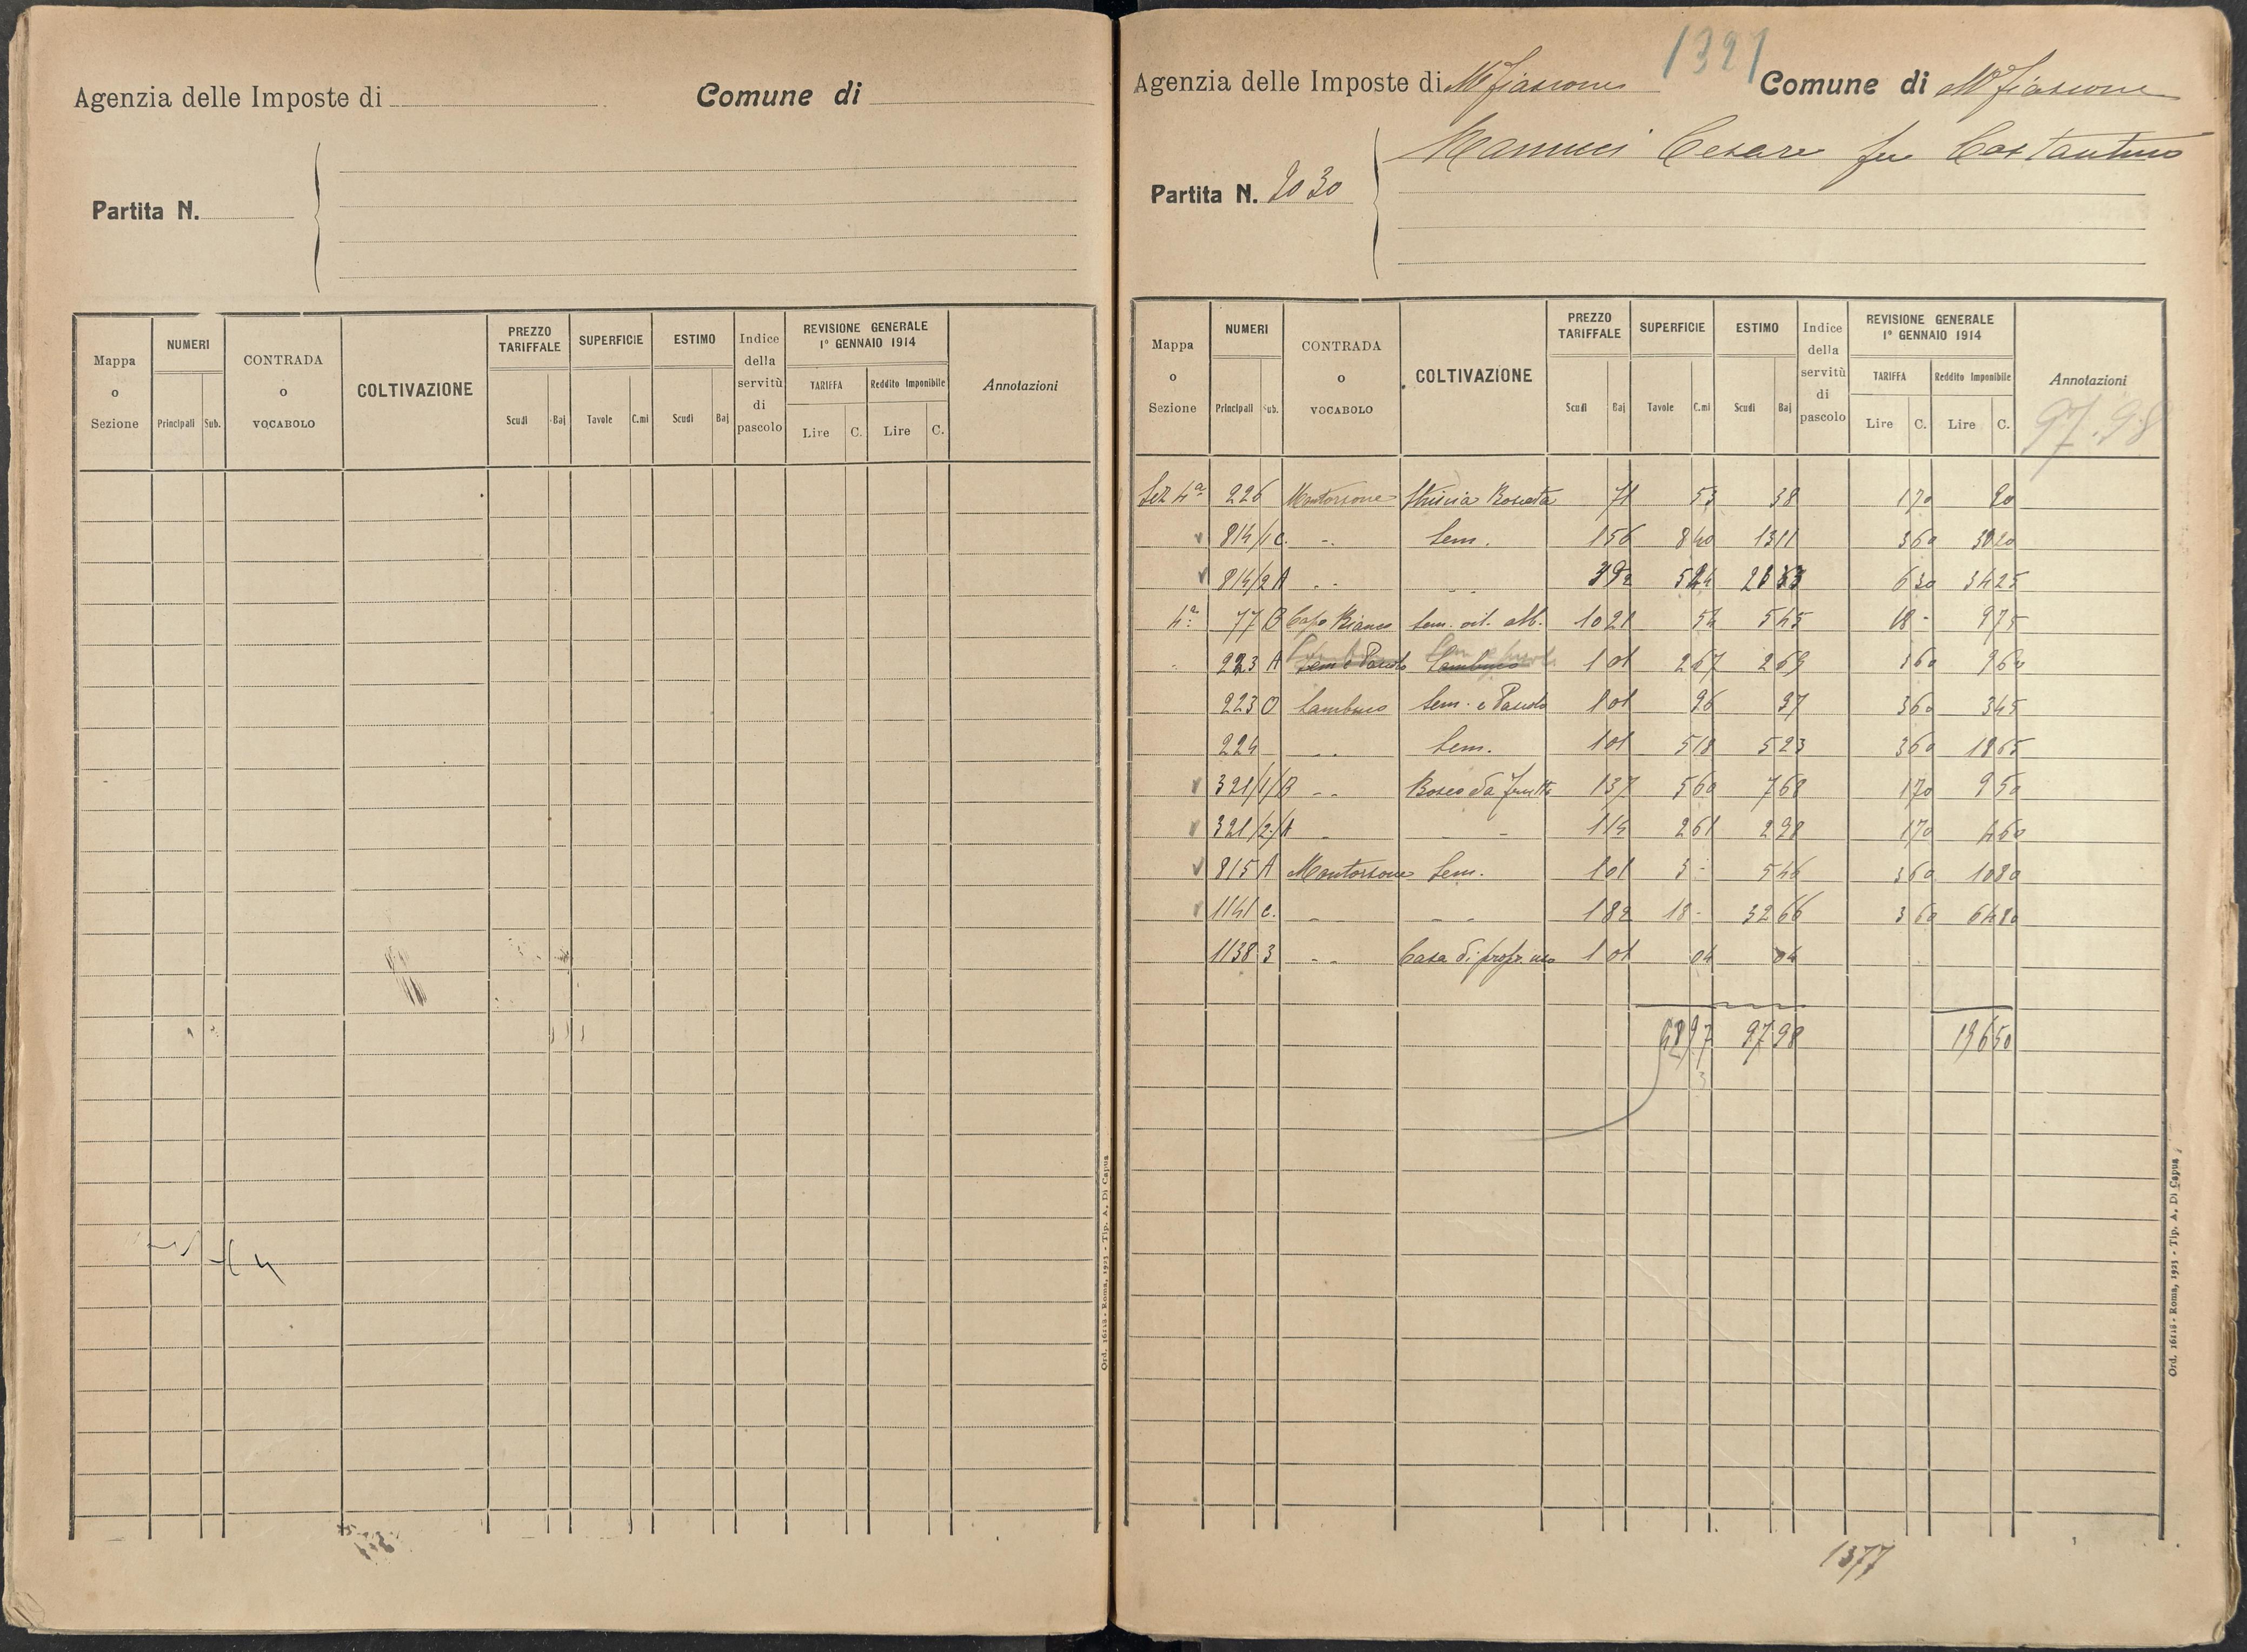 Agenzia delle Imposte di
Comune di
Partita N.
Mappa o Sezione
NUMERI
Principali
Sub.
CONTRADA o VOCABOLO
COLTIVAZIONE
PREZZO TARIFFALE
Scudi
Baj
SUPERFICIE
Tavole
C.mi
ESTIMO
Scudi
Baj
Indice della servitù di pascolo
REVISIONE GENERALE 1° GENNAIO 1914
TARIFFA
Lire
C.
Reddito Imponibile
Lire
C.
Annotazioni
Ord. 16218 - Roma, 1923 - Tip. A. Di Capua
1321
Agenzia delle Imposte di M Fiascone Comune di M Fiascone
Manucci Cesare fu Costantino
Partita N. 2030
Mappa o Sezione
NUMERI
Principali
Sub.
CONTRADA o VOCABOLO
COLTIVAZIONE
PREZZO TARIFFALE
Scudi
Baj
SUPERFICIE
Tavole
C.mi
ESTIMO
Scudi
Baj
Indice della servitù di pascolo
REVISIONE GENERALE 1° GENNAIO 1914
TARIFFA
Lire
C.
Reddito Imponibile
Lire
C.
Annotazioni
97.98
Sez 4a 226 Montorsone Striscia Boscata 71 53 38 170 90
814/1 C. Sem. 156 840 1311 360 3020
814/2 A 392 544 630 3425
4a 77 B Capo Bianco Sem. oil. alb. 1021 54 545 18 - 975
223 A Sem e Pascolo Sambuco 101 267 269 360 960
223 O Sambuco Sem. e Pascolo 101 96 97 360 345
224 Sem. 101 518 523 360 1865
321/1/B Bosco da frutto 137 560 768 170 950
321/2/A 114 261 298 170 460
815 A Montorsone Sem. 101 5 - 546 360 1080
1141 C. 182 18 - 3266 360 6480
1138 3 Casa di propr. uso 101 04 04
97 98 196 50
3
1377
Ord. 16218 - Roma, 1923 - Tip. A. Di Capua